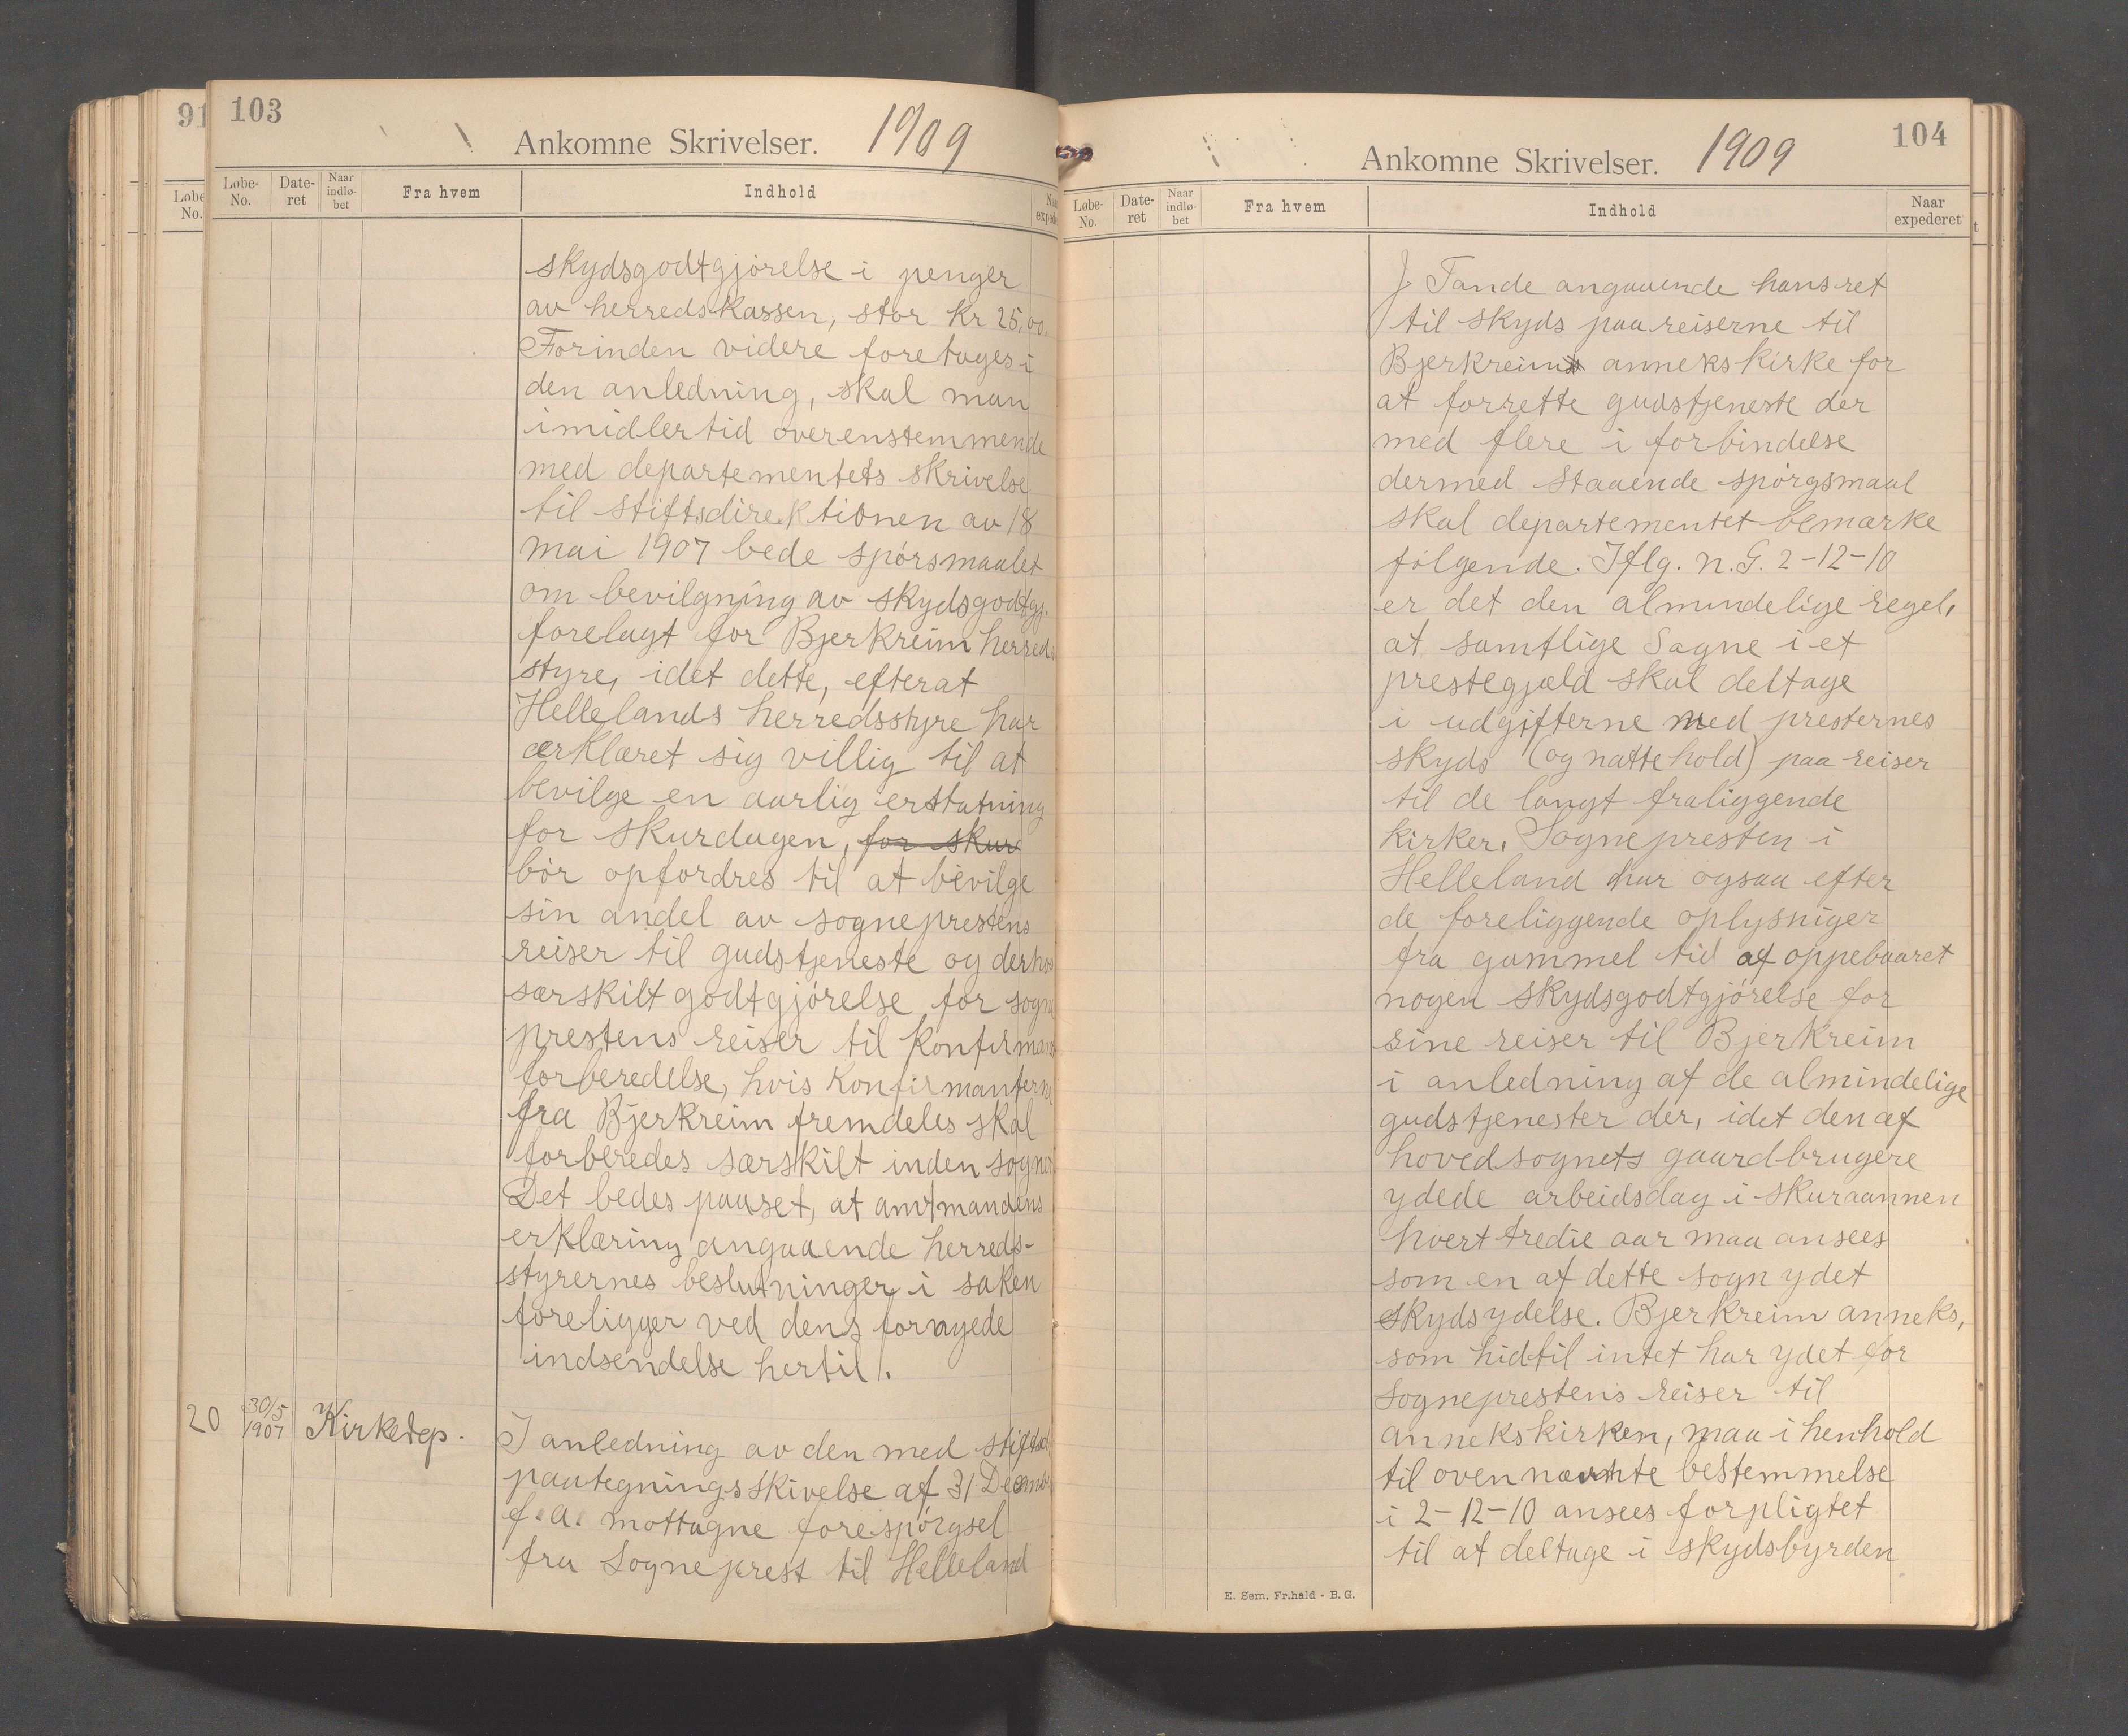 91
103
Ankomne Skrivelser. 1909
Løbe-No. Date-ret Naar indlø-bet Fra hvem Indhold
skydsgodtgjørelse i penger
av herredskassen, stor kr 25,00.
Forinden videre foretages i
den anledning, skal man
imidlertid overenstemmende
med departementets skrivelse
til stiftsdirektionen av 18
mai 1907 bede spørsmaalet
om bevilgning av skydsgodtgj.
forelagt for Bjerkreim herreds
styre, idet dette, efterat
Hellelands herredsstyre har
ærklæret sig villig til at
bevilge en aarlig erstatning
for skurdagen, for skur
bör opfordres til at bevilge
sin andel av sogneprestens
reiser til gudstjeneste og derhos
særskilt godtgjörelse for sogne
prestens reiser til konfirmant
forberedelse, hvis konfirmanterne
fra Bjerkreim fremdeles skal
forberedes særskilt inden sognet
Det bedes paaset, at amtmandens
erklæring angaaende herreds-
styrernes beslutninger i saken
foreligger ved dens fornyede
indsendelse hertil.
20 30/5 1907 Kirkedep. I anledning av den med stiftsd
paategningsskivelse af 31 December
f. a. mottagne forespörgsel
fra Sogneprest til Helleland
104
Ankomne Skrivelser. 1909
Løbe-No. Date-ret Naar indlø-bet Fra hvem Indhold Naar expederet
J. Tande angaaende hans ret
til skyds paa reiserne til
Bjerkreim annekskirke for
at forrette gudstjeneste der
med flere i forbindelse
dermed staaende spörgsmaal
skal departementet bemærke
følgende. Iflg. N. G. 2-12-10
er det den almindelige regel,
at samtlige Sogne i et
prestegjæld skal deltage
i udgifterne med presternes
skyds (og nattehold) paa reiser
til de langt fraliggende
kirker. Sognepresten i
Helleland har ogsaa efter
de foreliggende oplysniger
fra gammel tid af oppebaaret
nogen skydsgodtgjörelse for
sine reiser til Bjerkreim
i anledning af de almindelige
gudstjenester der, idet den af
hovedsognets gaardbrugere
ydede arbeidsdag i skuraannen
hvert tredie aar maa ansees
som en af dette sogn ydet
skydsydelse. Bjerkreim anneks,
som hidtil intet har ydet for
Sogneprestens reiser til
annekskirken, maa i henhold
til ovennævnte bestemmelse
i 2-12-10 ansees forpligtet
til at deltage i skydsbyrden
E. Sem. Fr.hald - B. G.